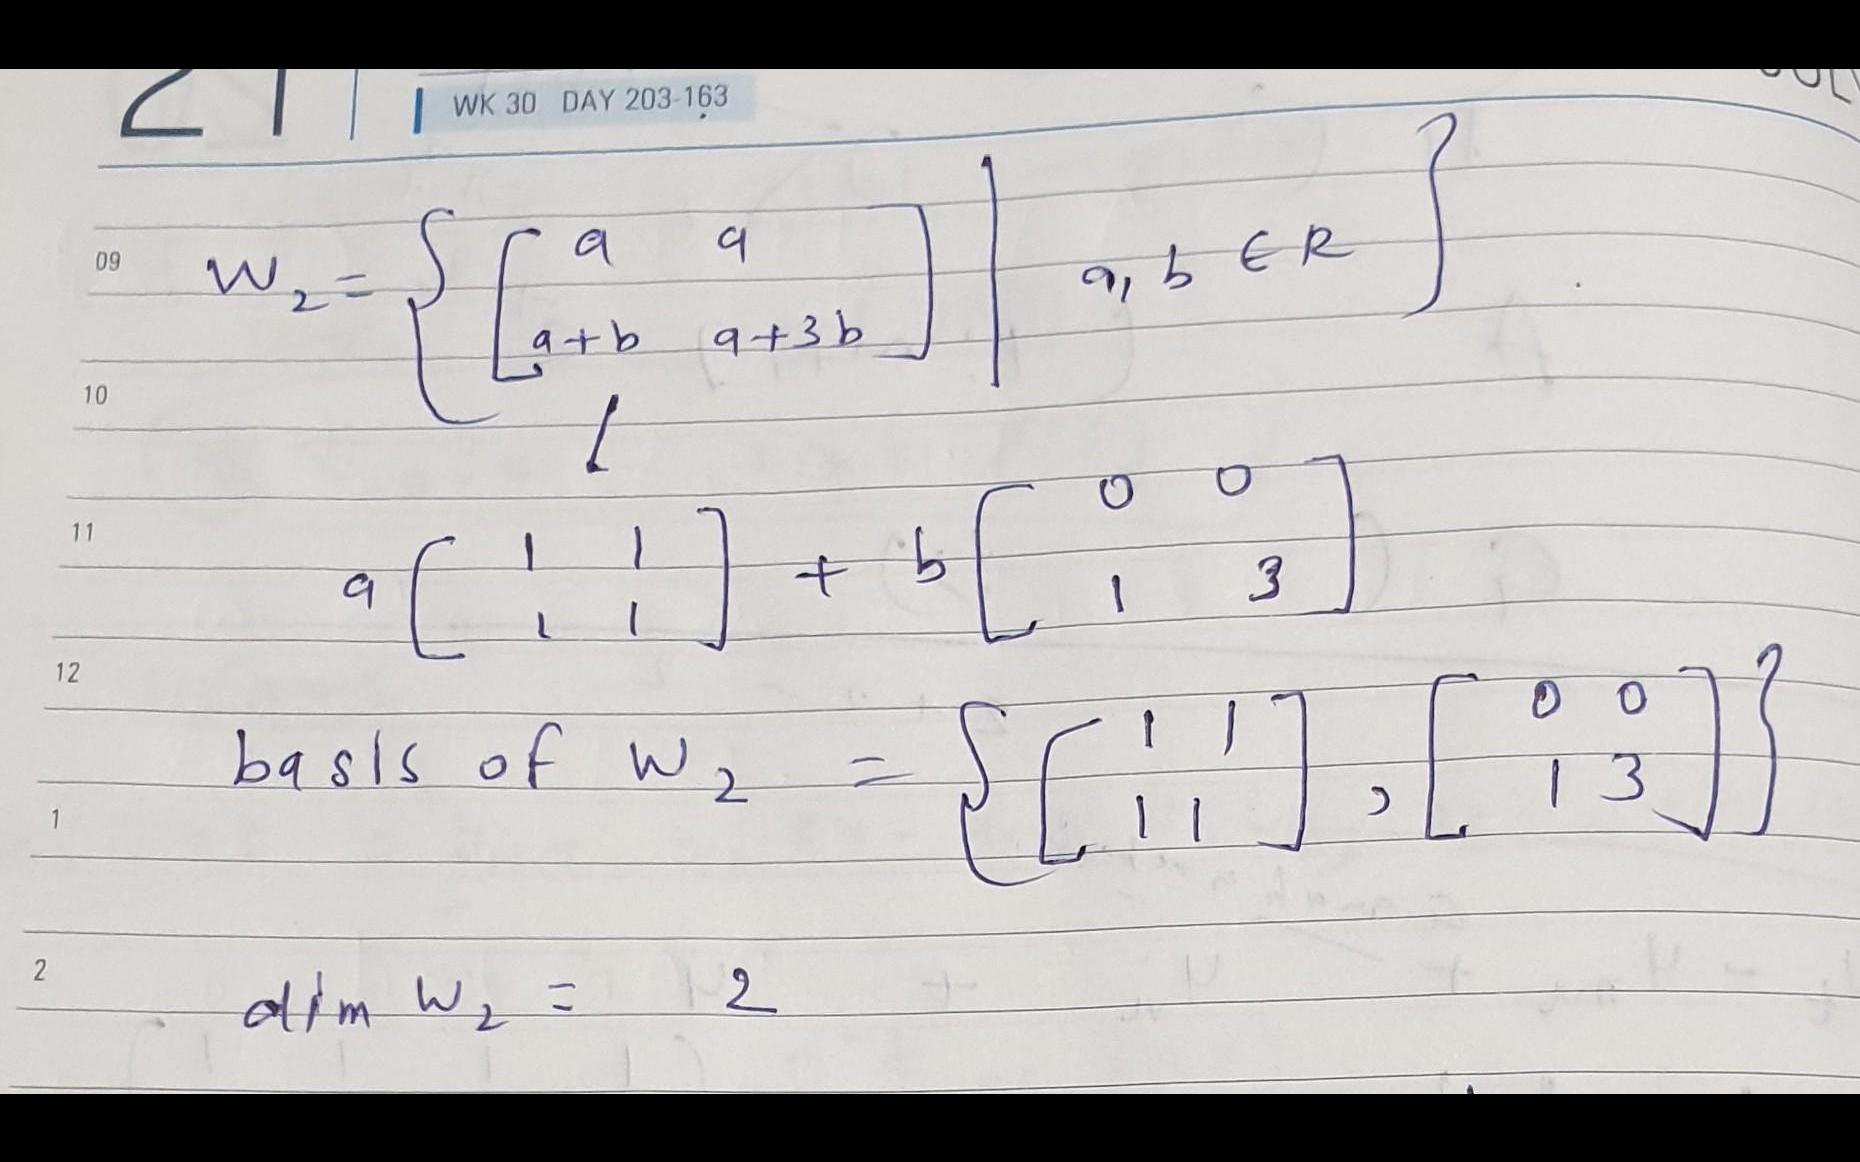 21
WK 30 DAY 203-163
09 W₂ = { [ a a
a+b a+3b ] | a, b ∈ R }
10
11 a [ 1 1
1 1 ] + b [ 0 0
1 3 ]
12
basis of W₂ = { [ 1 1
1 1 ] , [ 0 0
1 3 ] }
1
2 dim W₂ = 2